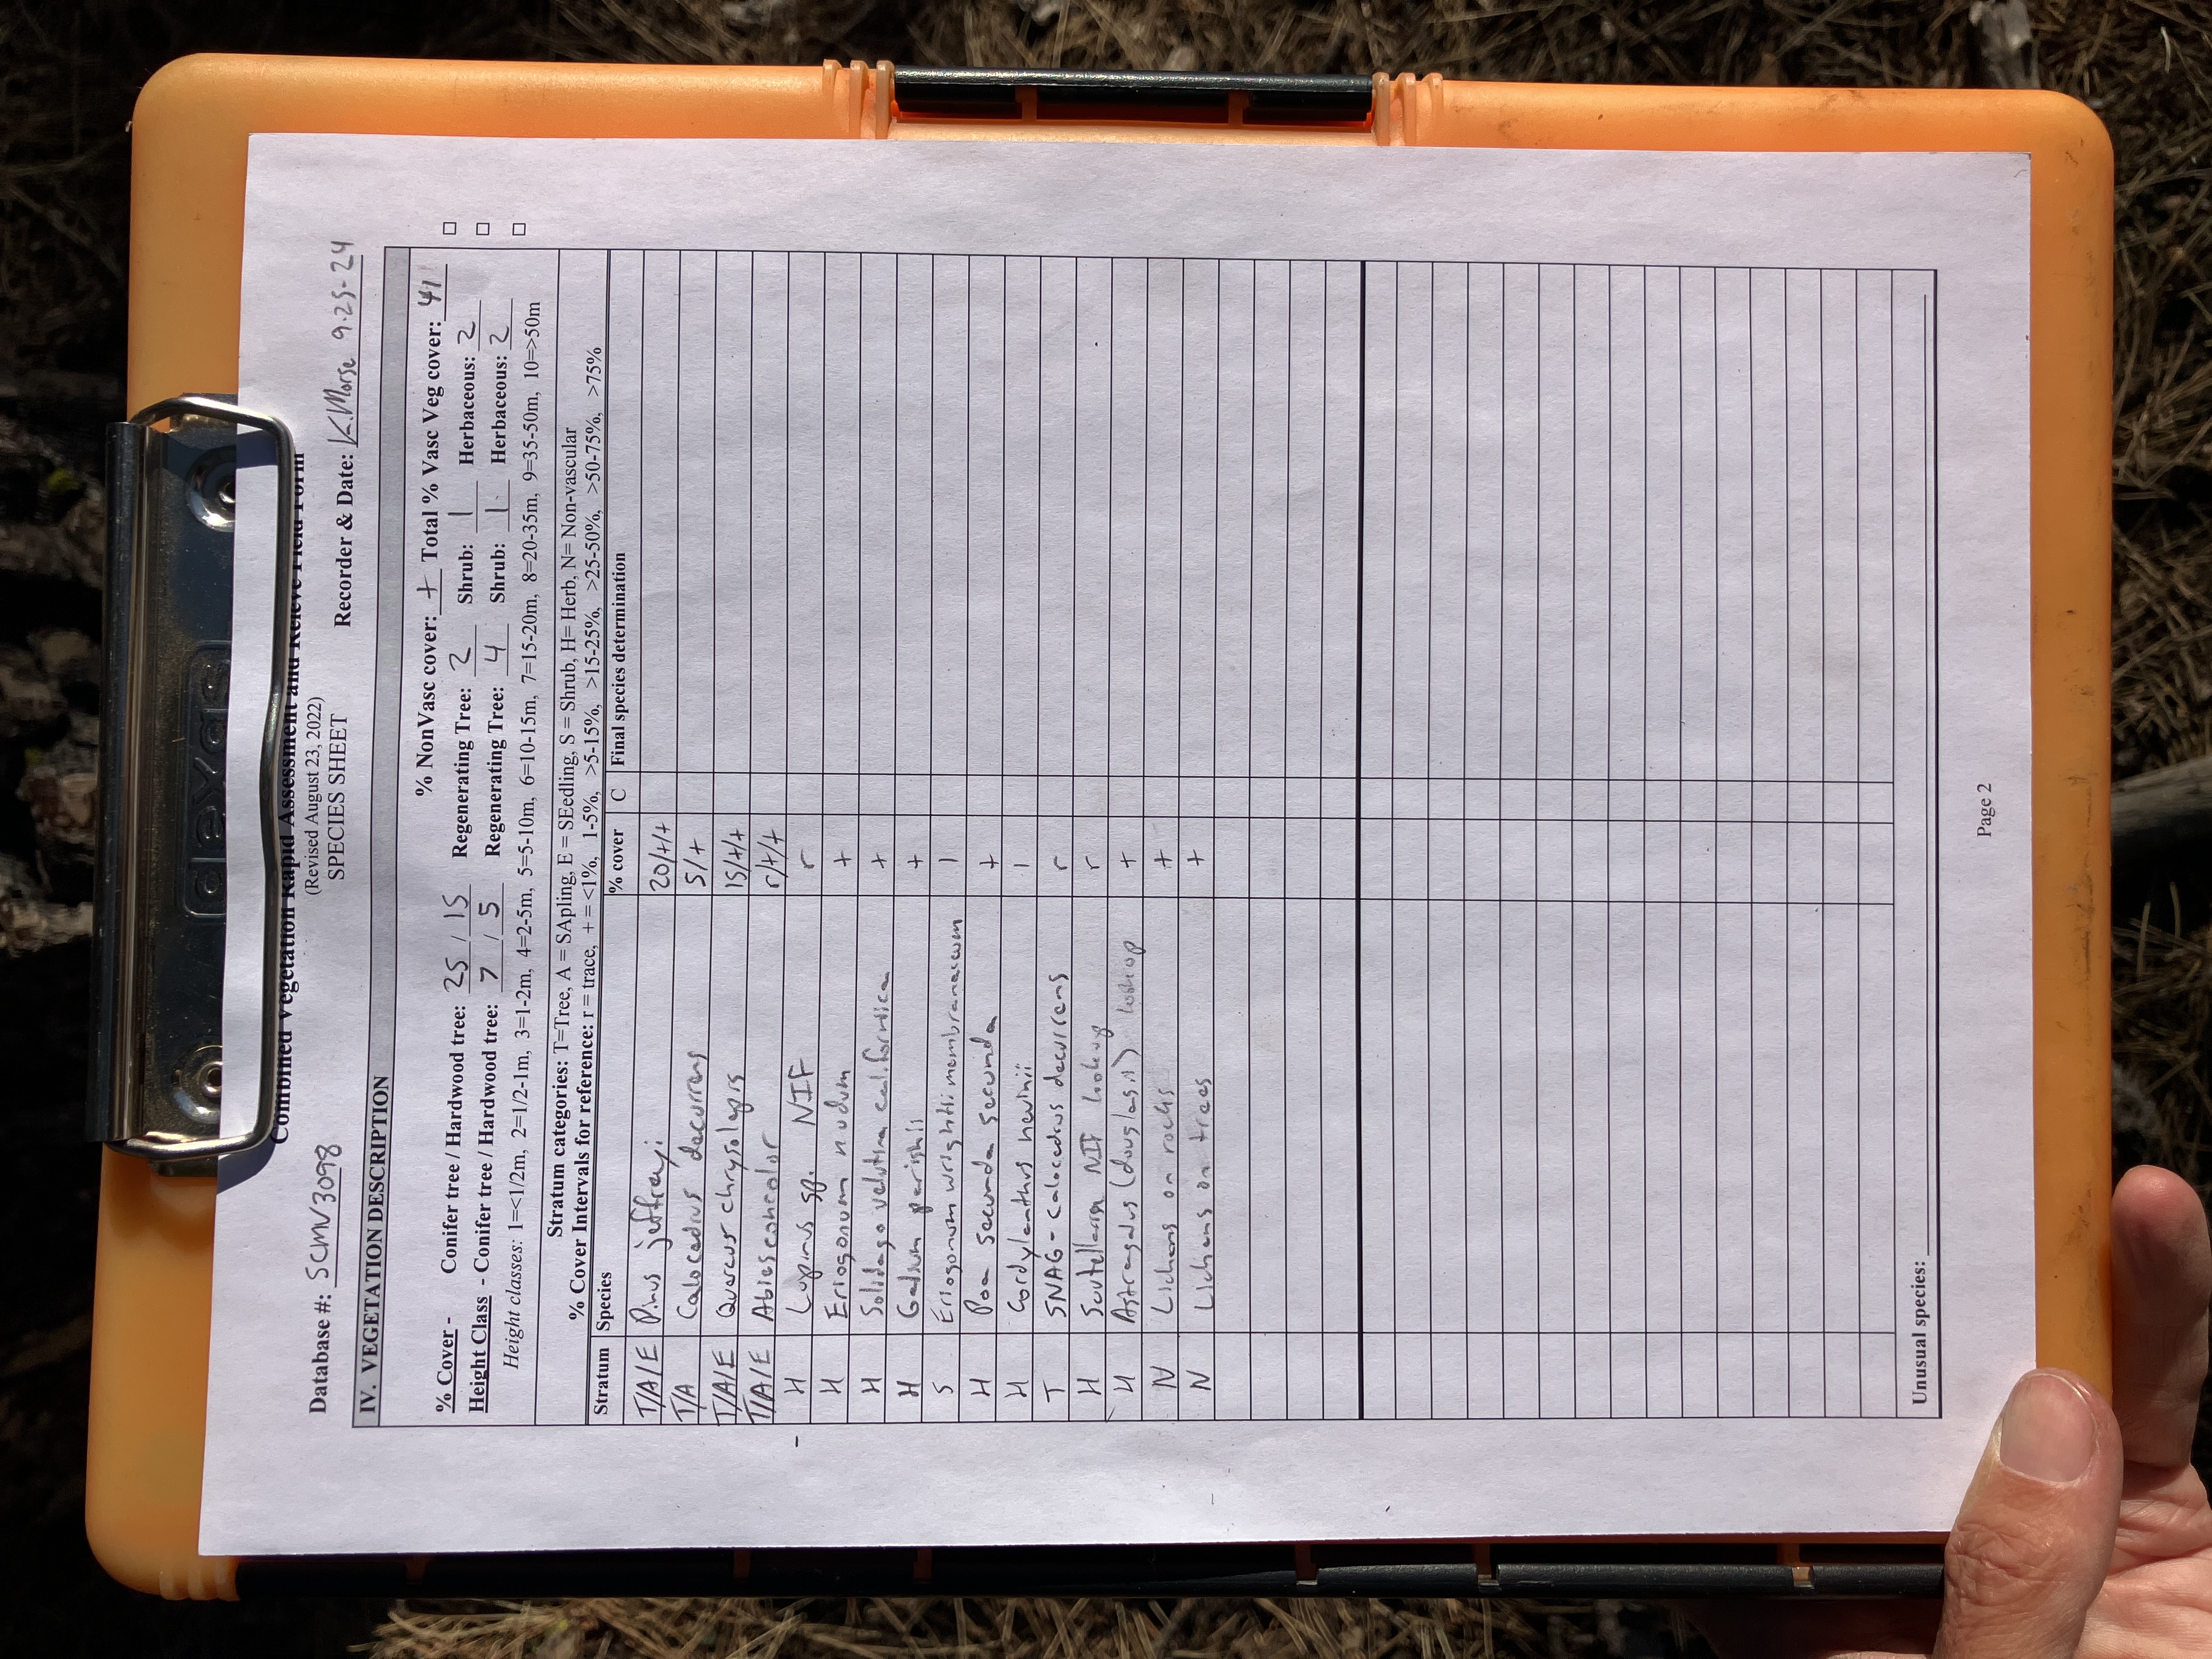 Combined Vegetation Rapid Assessment and Relevé Field Form
(Revised August 23, 2022)
SPECIES SHEET
Database #: SCMN3098 Recorder & Date: K.Morse 9-25-24
IV. VEGETATION DESCRIPTION
% NonVasc cover: + Total % Vasc Veg cover: 41
% Cover - Conifer tree / Hardwood tree: 25 / 15 Regenerating Tree: 2 Shrub: 1 Herbaceous: 2 □
Height Class - Conifer tree / Hardwood tree: 7 / 5 Regenerating Tree: 4 Shrub: 1 Herbaceous: 2 □
Height classes: 1=<1/2m, 2=1/2-1m, 3=1-2m, 4=2-5m, 5=5-10m, 6=10-15m, 7=15-20m, 8=20-35m, 9=35-50m, 10=>50m □
Stratum categories: T=Tree, A = SApling, E = SEedling, S = Shrub, H= Herb, N= Non-vascular
% Cover Intervals for reference: r = trace, + = <1%, 1-5%, >5-15%, >15-25%, >25-50%, >50-75%, >75%
Stratum Species % cover C Final species determination
T/A/E Pinus jeffreyi 20/+/+
T/A Calocedrus decurrens 5/+
T/A/E Quercus chrysolepis 15/+/+
T/A/E Abies concolor r/+/+
H Lupinus sp. NIF r
H Eriogonum nudum +
H Solidago velutina californica +
H Galium parishii +
S Eriogonum wrightii membranaceum 1
H Poa secunda secunda +
H Cordylanthus nevinii 1
T SNAG - calocedrus decurrens r
H Scutellaria NIF lookup r
H Astragalus (douglasii) lookup +
N Lichens on rocks +
N Lichens on trees +
Unusual species:
Page 2
dexas